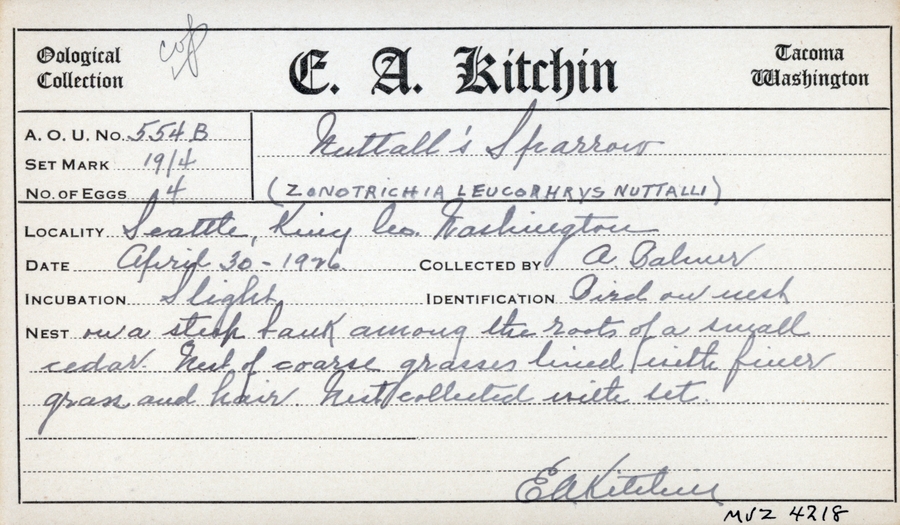 Oological Collection
E. A. Kitchin
Tacoma Washington
A. O. U. No. 554B
Nuttall's Sparrow
Set Mark 19/4
No. of Eggs 4
(ZONOTRICHIA LEUCOPHRYS NUTTALLI)
Locality Seattle, King Co. Washington
Date April 30-1926 Collected by A. Balmer
Incubation Slight Identification Bird on nest
Nest on a steep bank among the roots of a small
cedar. Nest of coarse grasses lined with finer
grass and hair. Nest collected with set.
E A Kitchin
MVZ 4218